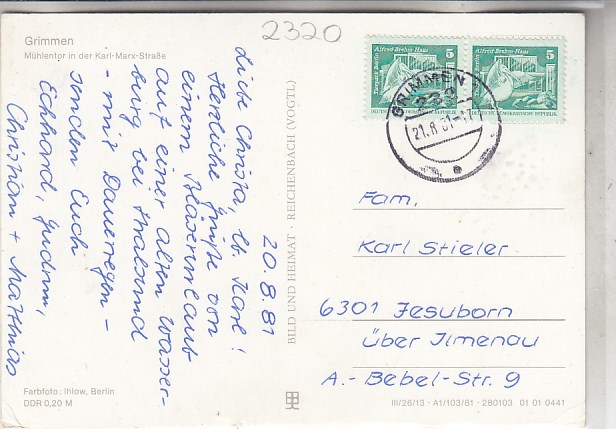 2320
Grimmen
Mühlentor in der Karl-Marx-Straße
20.8.81
Liebe Christa, lb. Karl!
Herzliche Grüße von
einem Kurzurlaub
auf einer alten Wasser-
burg bei Stralsund
- mit Dauerregen -
senden Euch
Eckhard, Gudrun,
Christiane + Matthias
Alfred-Brehm-Haus
Tierpark Berlin
5
DEUTSCHE DEMOKRATISCHE REPUBLIK
Alfred-Brehm-Haus
Tierpark Berlin
5
DEUTSCHE DEMOKRATISCHE REPUBLIK
GRIMMEN
232
21.8.81
Fam.
Karl Stieler
6301 Jesuborn
über Ilmenau
A.-Bebel-Str. 9
BILD UND HEIMAT · REICHENBACH (VOGTL)
Farbfoto: Ihlow, Berlin
DDR 0,20 M
III/26/13 · A1/103/81 · 280103 01 01 0441